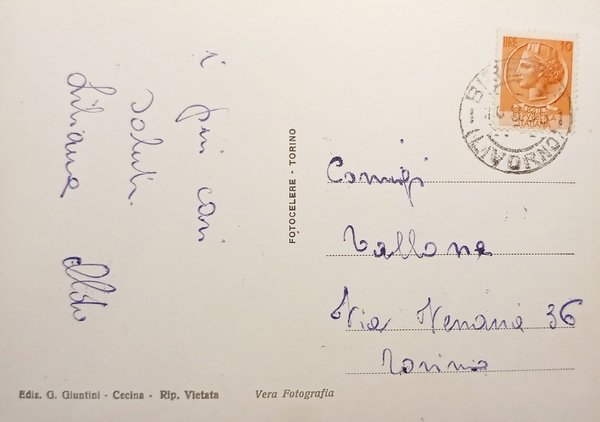 i più cari
saluti.
Liliana Aldo
FOTOCELERE - TORINO
LIRE 10
(LIVORNO)
Coniugi
Tallone
Via Venaria 36
Torino
Ediz. G. Giuntini - Cecina - Rip. Vietata
Vera Fotografia